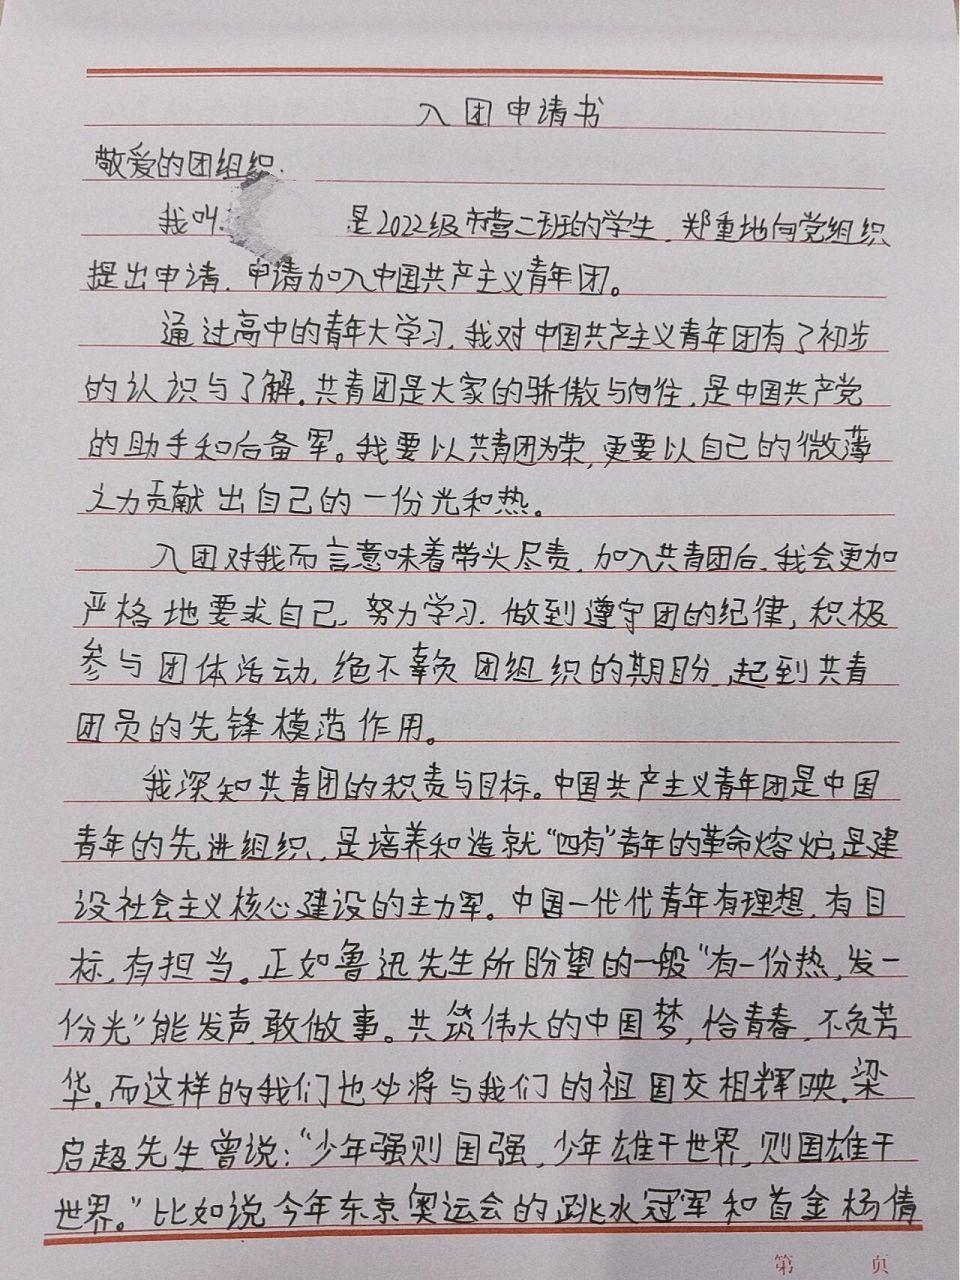 入团申请书
敬爱的团组织:
我叫 是2022级市营二班的学生,郑重地向党组织
提出申请,申请加入中国共产主义青年团。
通过高中的青年大学习,我对中国共产主义青年团有了初步
的认识与了解,共青团是大家的骄傲与向往,是中国共产党
的助手和后备军。我要以共青团为荣,更要以自己的微薄
之力贡献出自己的一份光和热。
入团对我而言意味着带头尽责,加入共青团后,我会更加
严格地要求自己,努力学习,做到遵守团的纪律,积极
参与团体活动,绝不辜负团组织的期盼,起到共青
团员的先锋模范作用。
我深知共青团的积责与目标。中国共产主义青年团是中国
青年的先进组织,是培养和造就“四有”青年的革命熔炉,是建
设社会主义核心建设的主力军。中国一代代青年有理想,有目
标,有担当。正如鲁迅先生所盼望的一般“有一份热,发一
份光”能发声,敢做事。共筑伟大的中国梦,恰青春,不负芳
华。而这样的我们也必将与我们的祖国交相辉映。梁
启超先生曾说:“少年强则国强,少年雄于世界,则国雄于
世界。”比如说今年东京奥运会的跳水冠军和首金杨倩
第 页